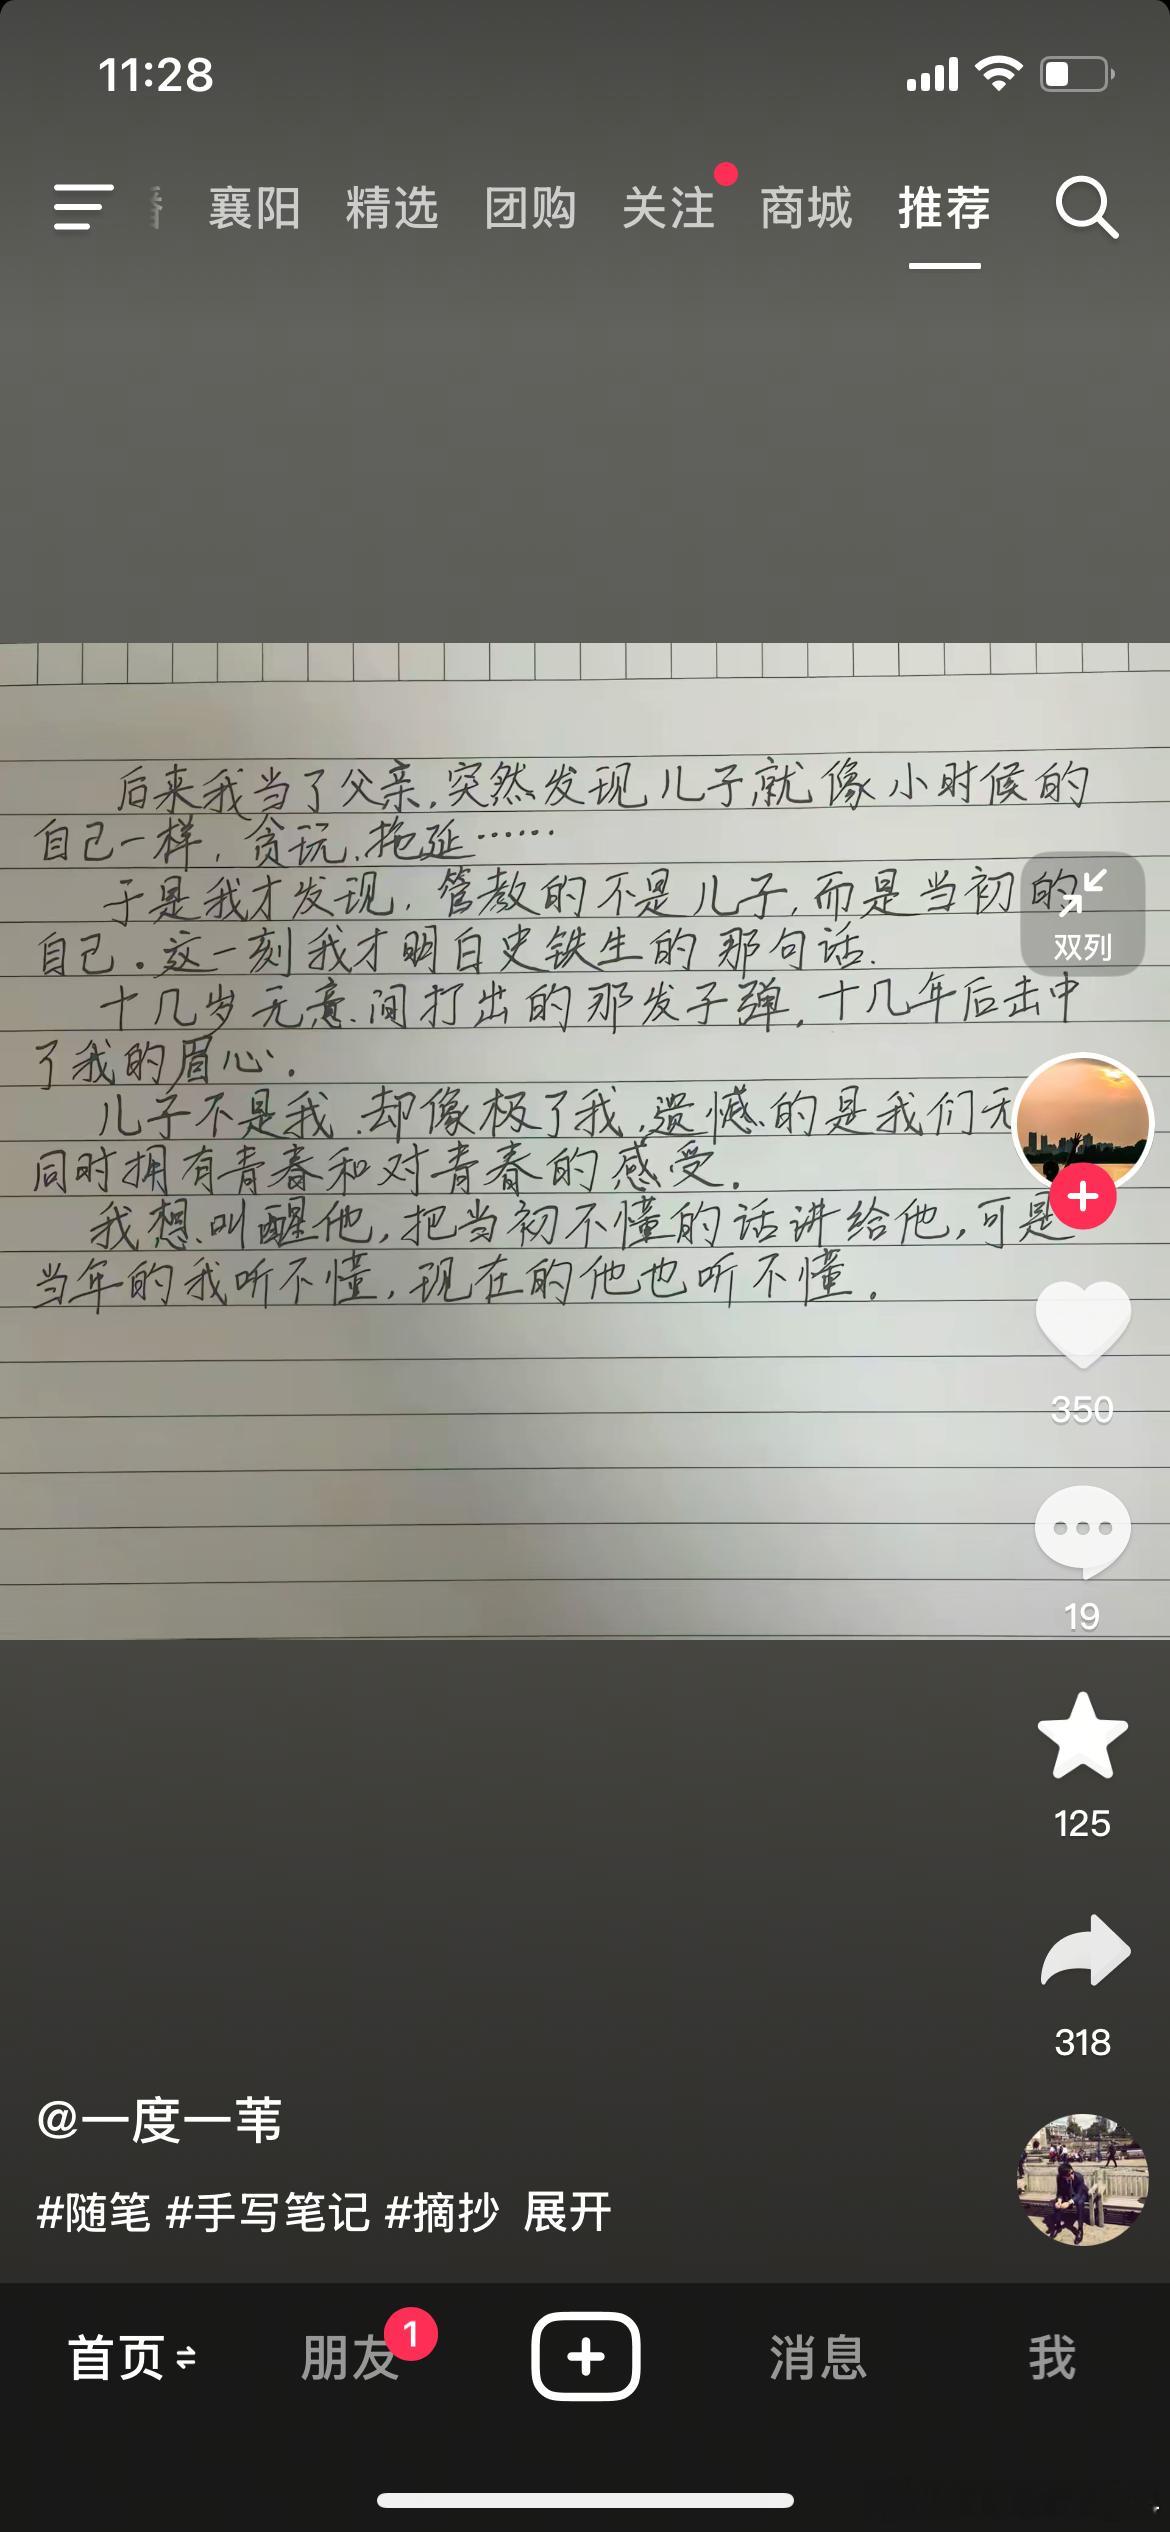 11:28
襄阳 精选 团购 关注 商城 推荐
后来我当了父亲,突然发现儿子就像小时候的
自己一样,贪玩、拖延……
于是我才发现,管教的不是儿子,而是当初的
自己。这一刻我才明白史铁生的那句话.
双列
十几岁无意间打出的那发子弹,十几年后击中
了我的眉心.
儿子不是我,却像极了我,遗憾的是我们无
同时拥有青春和对青春的感受.
我想叫醒他,把当初不懂的话讲给他,可是
当年的我听不懂,现在的他也听不懂。
350
19
125
318
@一度一苇
#随笔 #手写笔记 #摘抄 展开
首页 朋友 1 消息 我